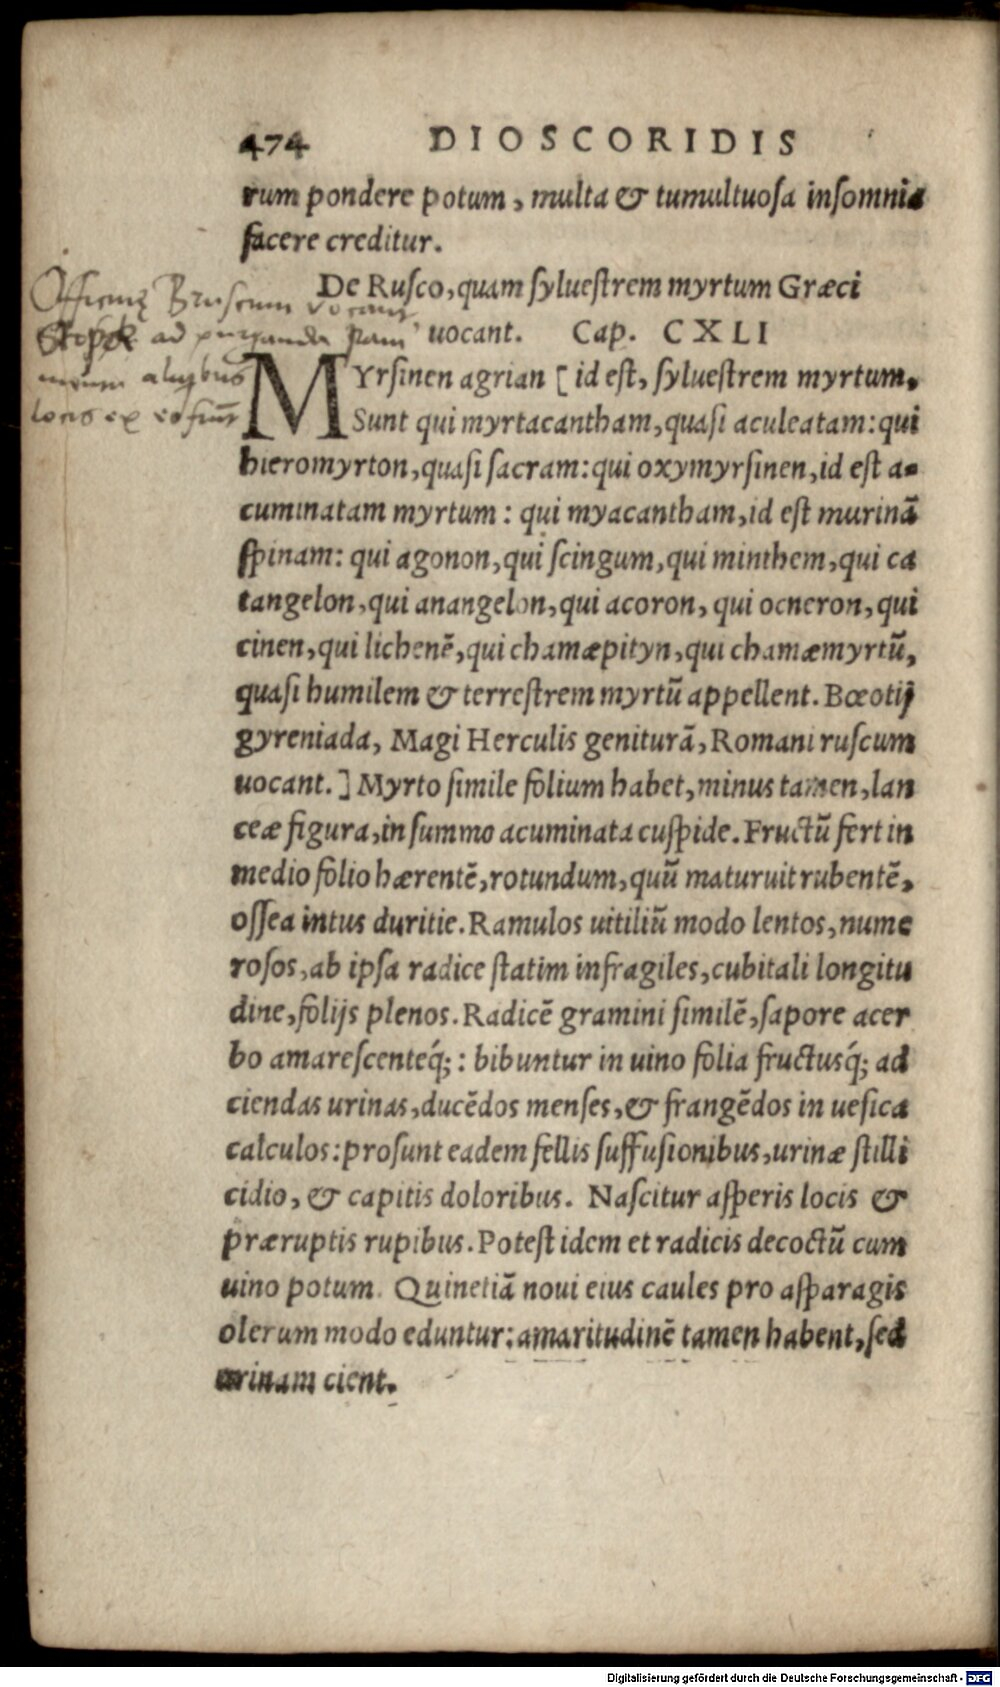 474 DIOSCORIDIS
rum pondere potum, multa & tumultuosa insomnia
facere creditur.
De Rusco, quam syluestrem myrtum Græci
uocant. Cap. CXLI
MYrsinen agrian [id est, syluestrem myrtum.
Sunt qui myrtacantham, quasi aculeatam: qui
hieromyrton, quasi sacram: qui oxymyrsinen, id est a-
cuminatam myrtum: qui myacantham, id est murinā
spinam: qui agonon, qui scingum, qui minthem, qui ca
tangelon, qui anangelon, qui acoron, qui ocneron, qui
cinen, qui lichenē, qui chamæpityn, qui chamæmyrtū,
quasi humilem & terrestrem myrtū appellent. Bœotij
gyreniada, Magi Herculis geniturā, Romani ruscum
uocant.] Myrto simile folium habet, minus tamen, lan
ceæ figura, in summo acuminata cuspide. Fructū fert in
medio folio hærentē, rotundum, quū maturuit rubentē,
ossea intus duritie. Ramulos uitiliū modo lentos, nume
rosos, ab ipsa radice statim infragiles, cubitali longitu
dine, folijs plenos. Radicē gramini similē, sapore acer
bo amarescenteq́;: bibuntur in uino folia fructusq́; ad
ciendas urinas, ducēdos menses, & frangēdos in uesica
calculos: prosunt eadem fellis suffusionibus, urinæ stilli
cidio, & capitis doloribus. Nascitur asperis locis &
præruptis rupibus. Potest idem et radicis decoctū cum
uino potum. Quinetiā noui eius caules pro asparagis
olerum modo eduntur: amaritudinē tamen habent, sed
urinam cient.
Bruscum vocant
ad purganda
aliqbus
locis ex
Digitalisierung gefördert durch die Deutsche Forschungsgemeinschaft - DFG